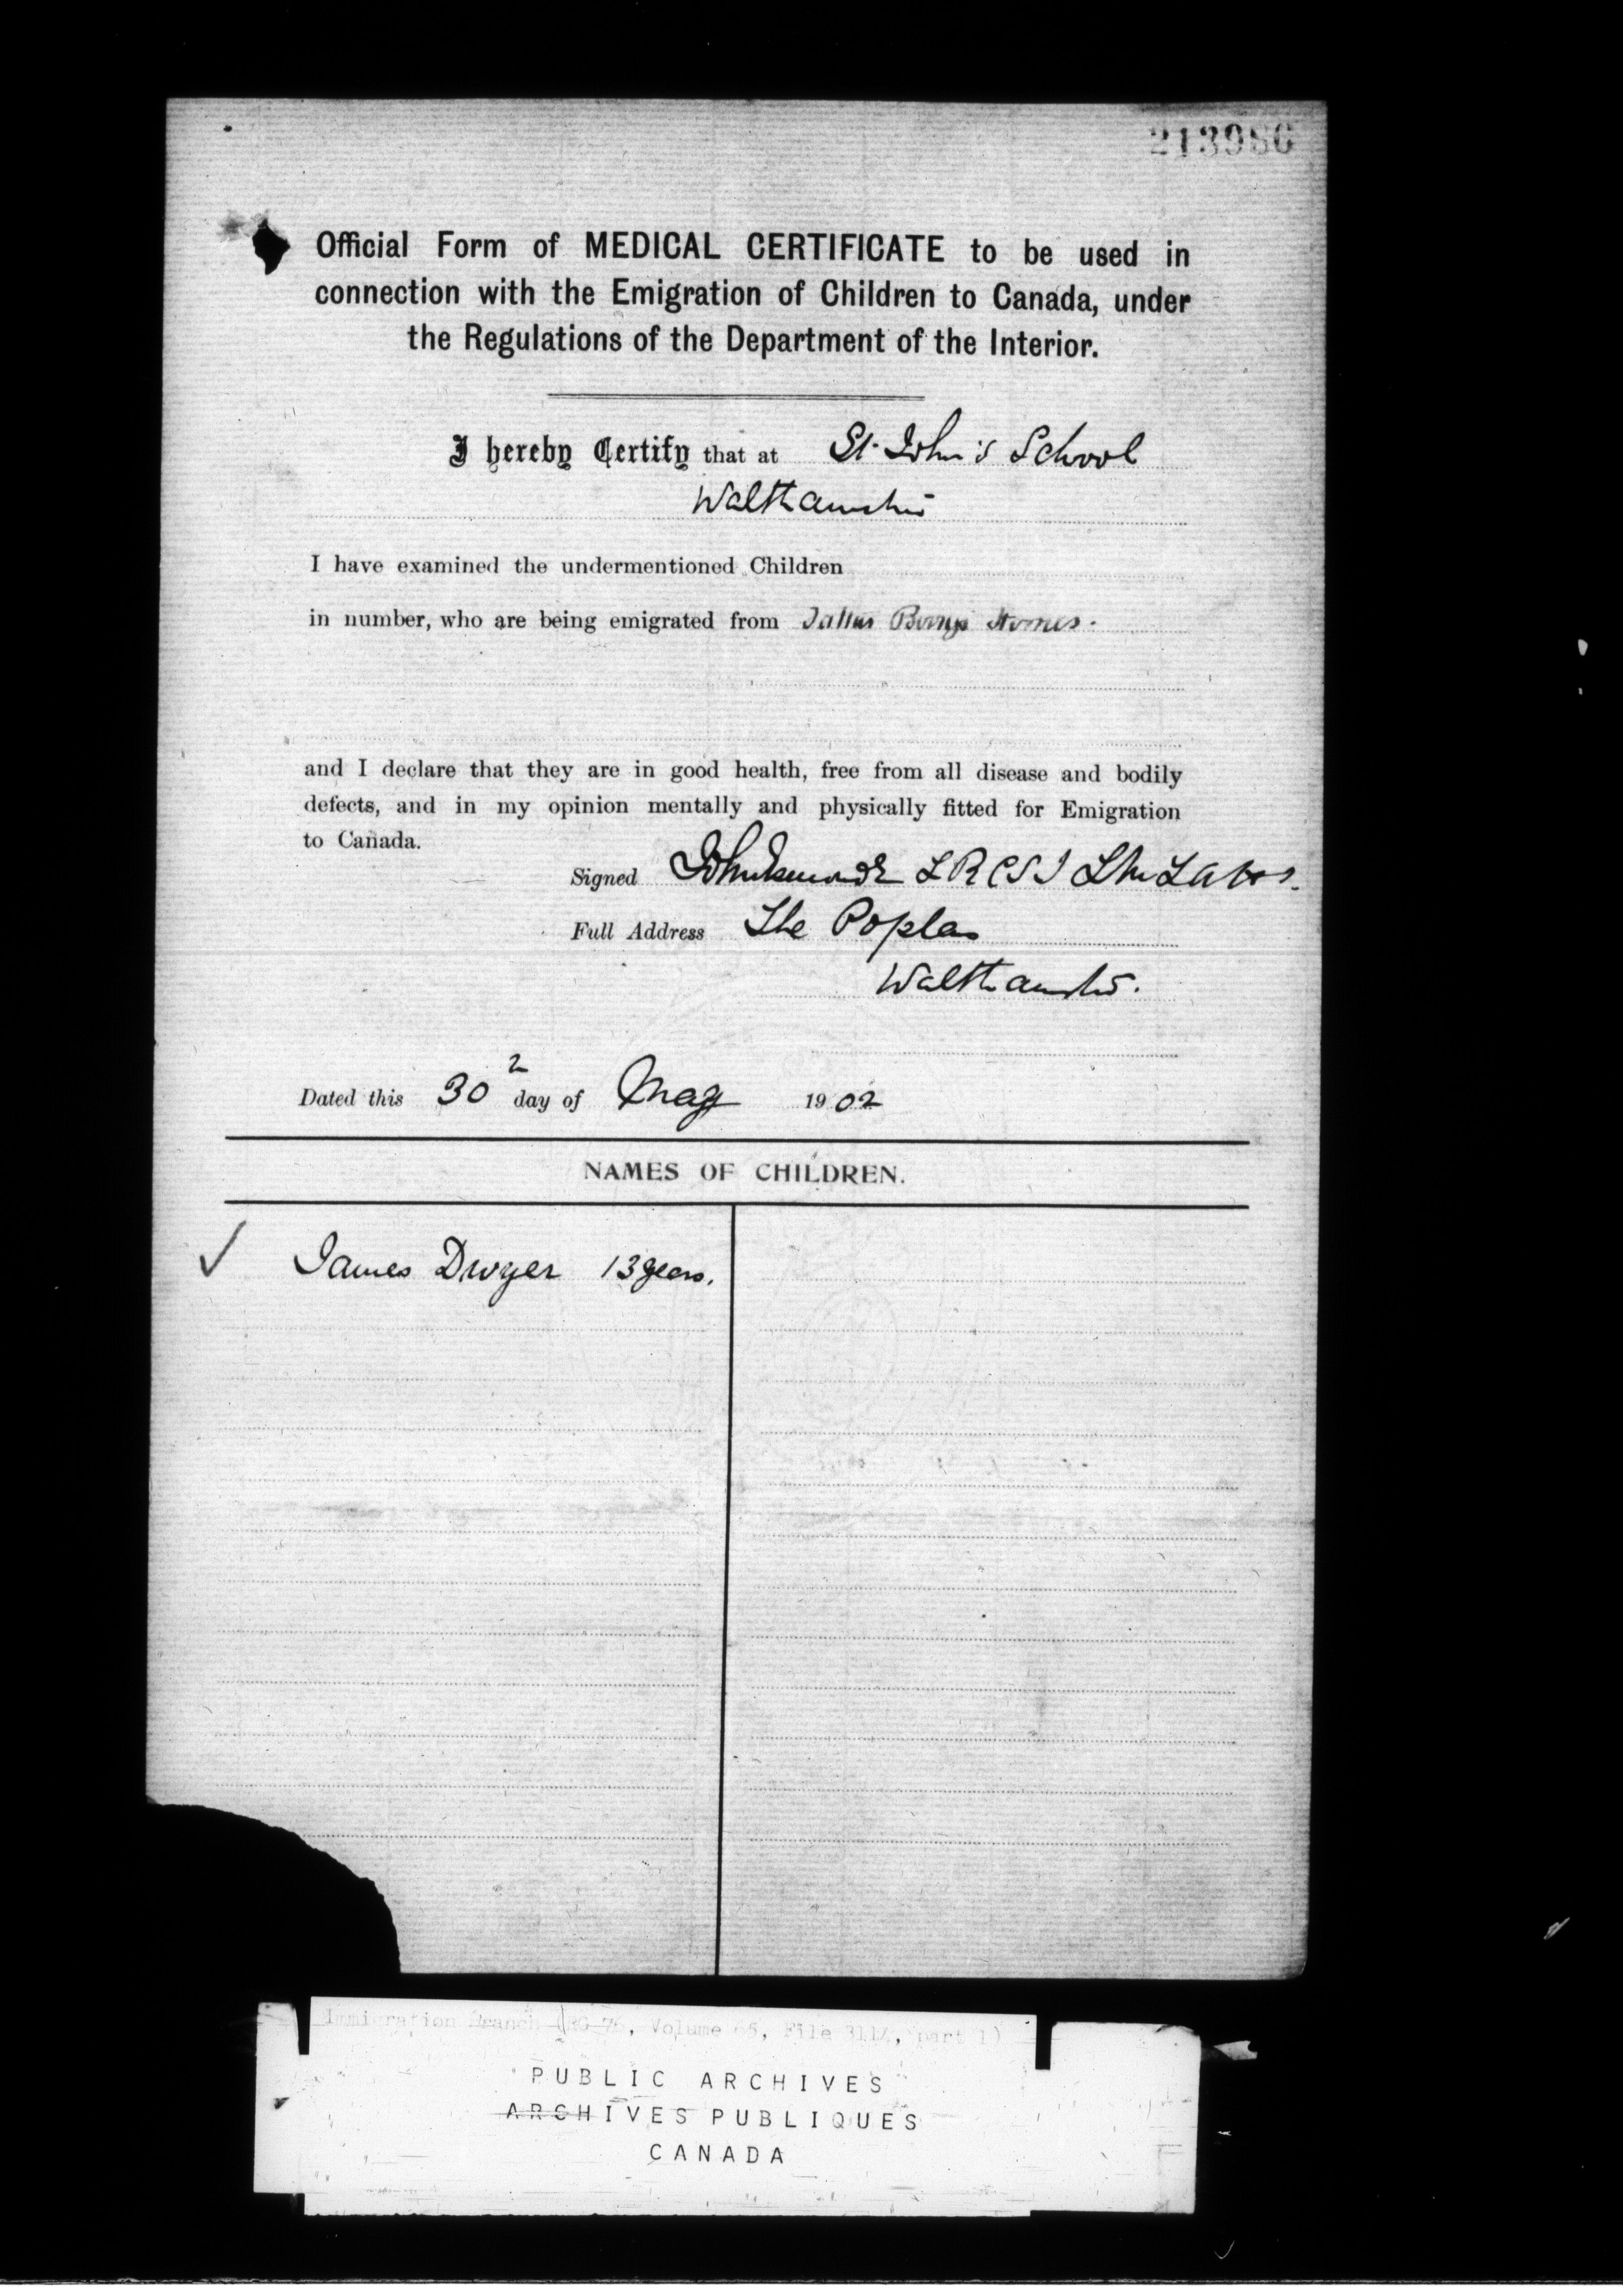 213986
Official Form of MEDICAL CERTIFICATE to be used in
connection with the Emigration of Children to Canada, under
the Regulations of the Department of the Interior.
I hereby Certify that at St. John's School
Walthamstow
I have examined the undermentioned Children
in number, who are being emigrated from Boys Homes.
and I declare that they are in good health, free from all disease and bodily
defects, and in my opinion mentally and physically fitted for Emigration
to Canada.
Signed L R C S I
Full Address The Poplars
Walthamstow.
Dated this 30 day of May 1902
NAMES OF CHILDREN.
James Dwyer 13 years.
Immigration Branch (RG 76, Volume 65, File 3114, part 1)
PUBLIC ARCHIVES
ARCHIVES PUBLIQUES
CANADA